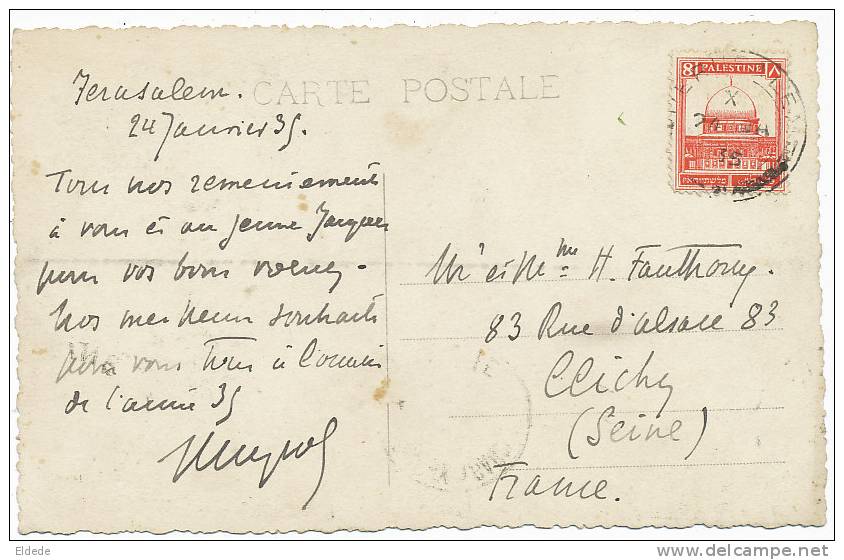 Jerusalem.
24 Janvier 35.
CARTE POSTALE
8 PALESTINE ٨
X
24 JA
35
Tous nos remerciements
à vous et au jeune Jacques
pour vos bons voeux.
Nos meilleurs souhaits
pour vous tous à l'occasion
de l'année 35
Mr et Mme H. Fauthoux.
83 Rue d'Alsace 83
Clichy
(Seine)
France.
Eldede
delcampe.net